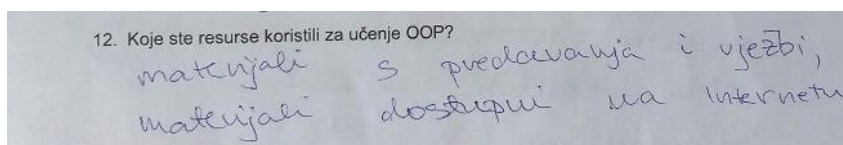 12. Koje ste resurse koristili za učenje OOP?
materijali s predavanja i vježbi,
materijali dostupni na Internetu